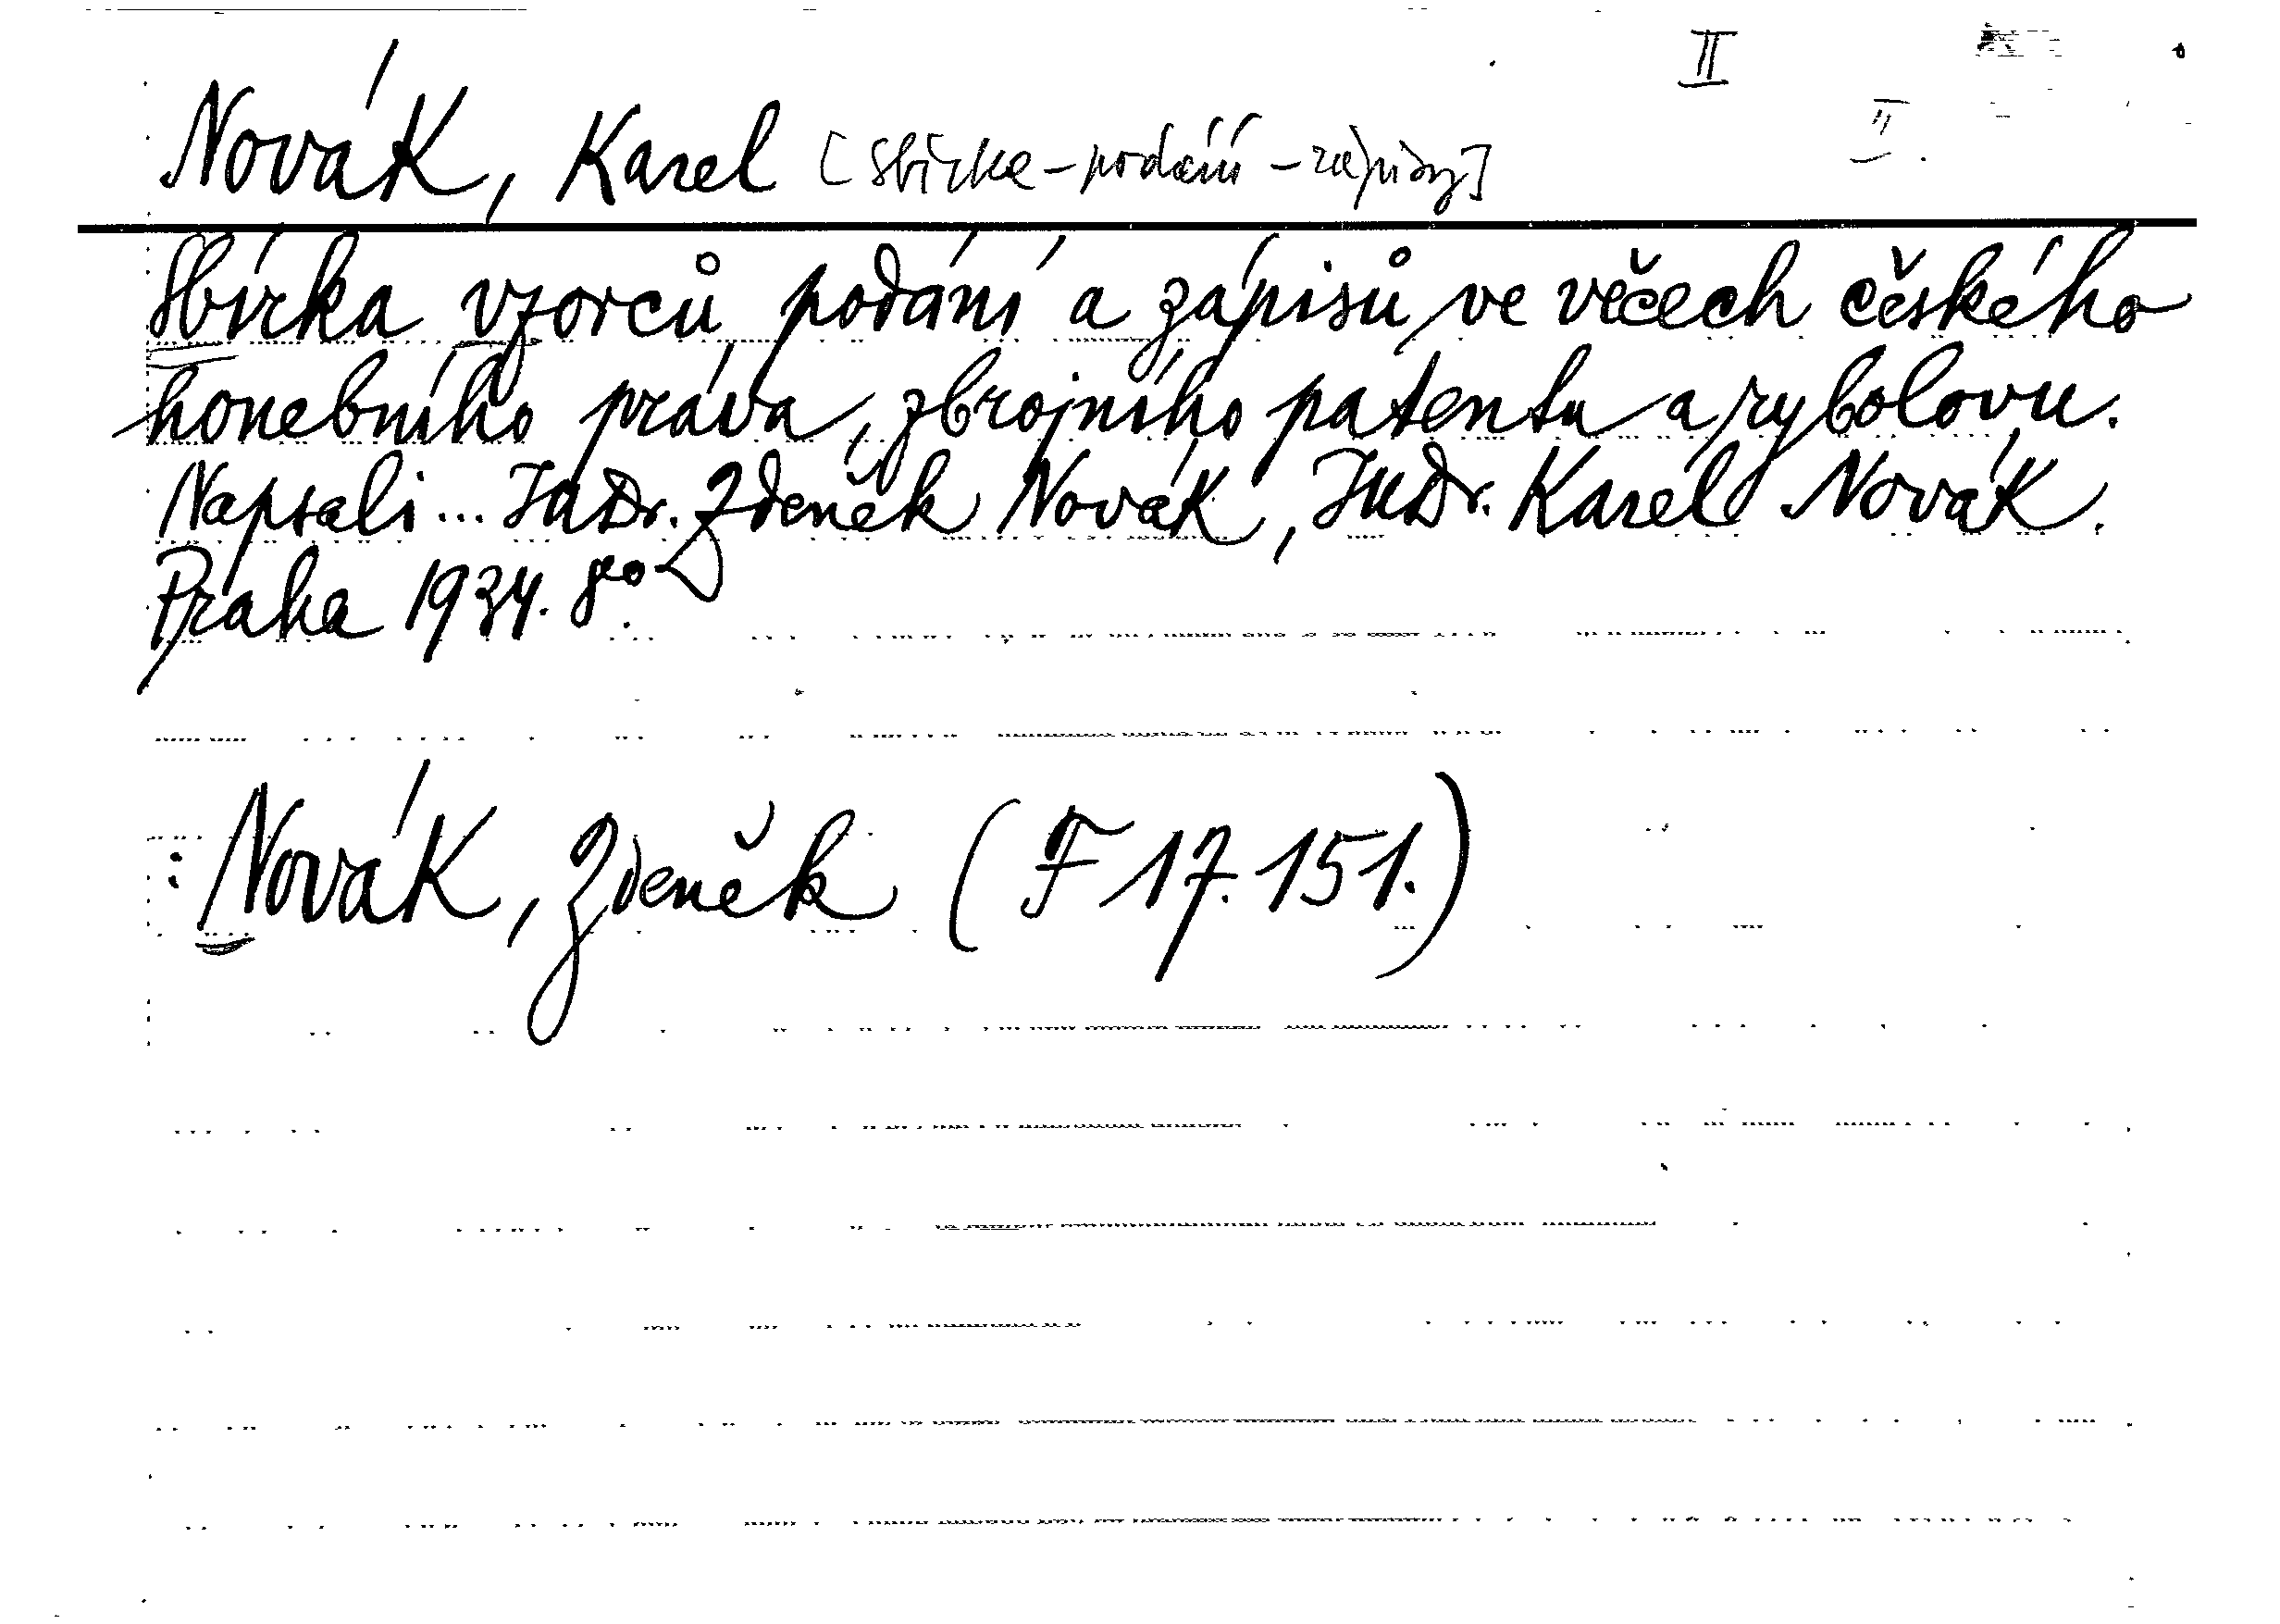 II
II.
Novák, Karel [Sbírka – podání – zápisy]
Sbírka vzorců podání a zápisů ve věcech českého
honebního práva, zbrojního patentu a rybolovu.
Napsali ... JUDr. Zdeněk Novák, JUDr. Karel Novák.
Praha 1934. 8o.
: Novák, Zdeněk (F 17.151.)